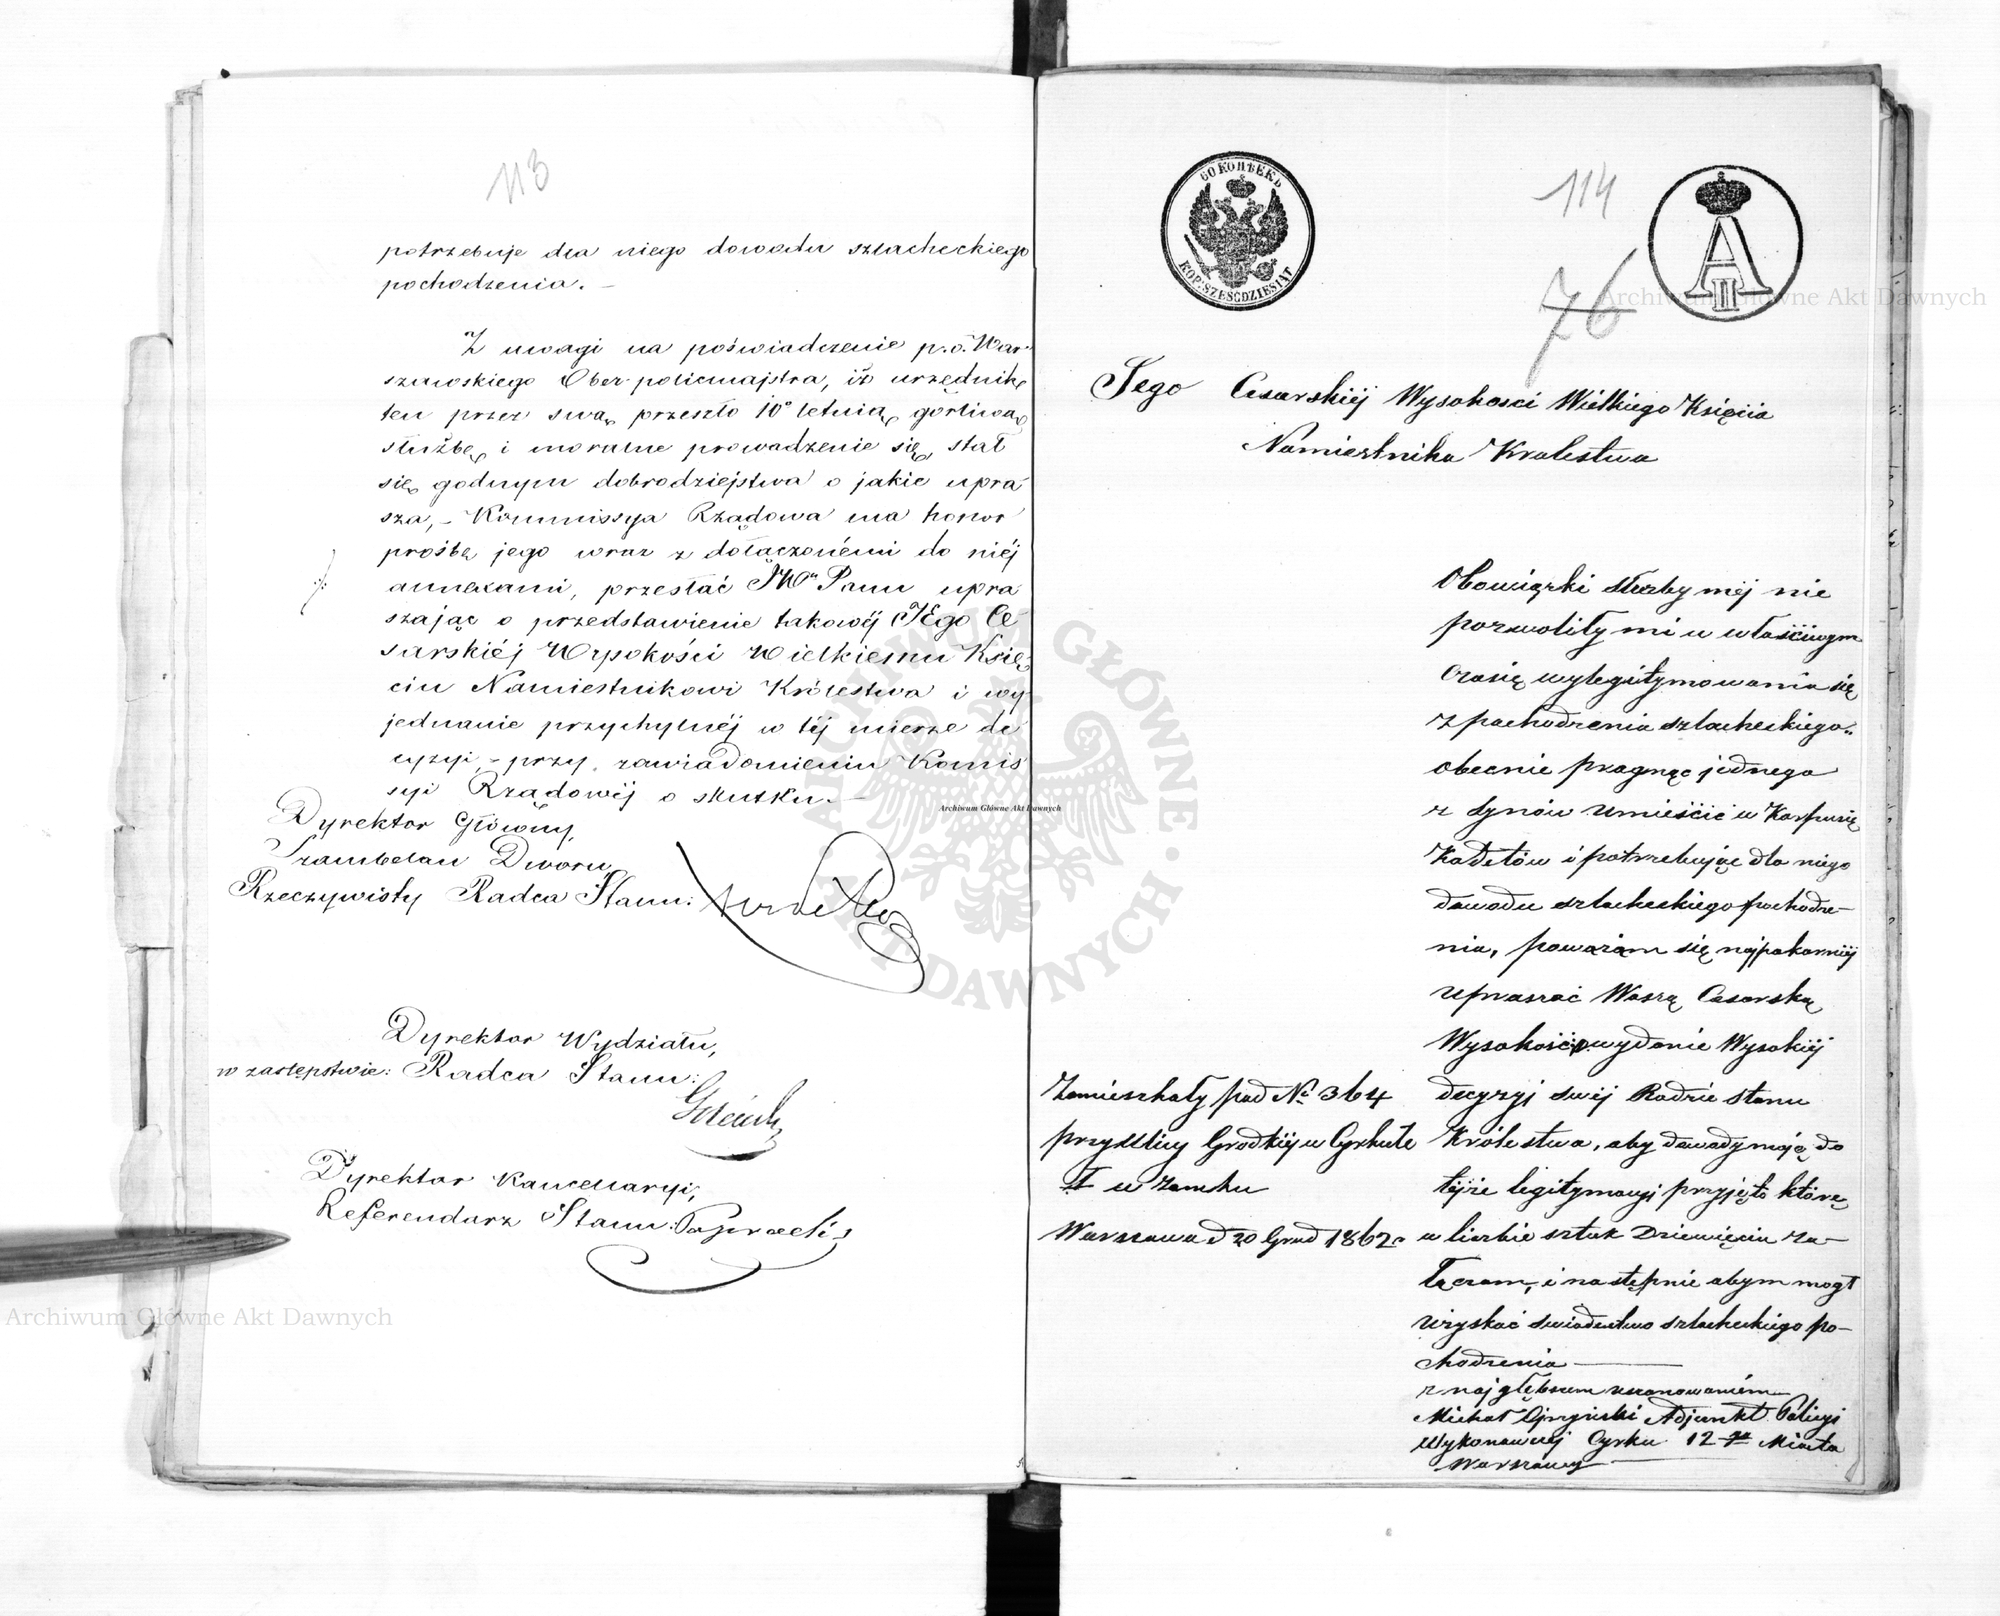 113
potrzebuje dla niego dowodu szlacheckiego
pochodzenia. —
Z uwagi na poświadczenie p. o. War-
szawskiego Ober-policmajstra, iż urzędnik
ten przez swą przeszło 10º letnią gorliwą
służbę i moralne prowadzenie się, stał
się godnym dobrodziejstwa o jakie upra
sza, - Kommissya Rządowa ma honor
prośbę jego wraz z dołączonémi do niéj
annexami, przesłać JWu Panu upra
szając o przedstawienie takowéj JEgo Ce
sarskiéj Wysokości Wielkiemu Księ
ciu Namiestnikowi Królestwa i wy
jednanie przychylnéj w téj mierze de
cyzyi, - przy zawiadomieniu Komis
syi Rządowéj o skutku. —
Dyrektor Główny,
Szambelan Dworu
Rzeczywisty Radca Stanu:
Dyrektor Wydziału,
w zastępstwie: Radca Stanu:
Dyrektor Kancellaryi,
Referendarz Stanu:
60 КОПѢЕКЪ
KOP. SZEŚĆDZIESIĄT
114
76
A II
Jego Cesarskiéj Wysokosci Wielkiego Księcia
Namiestnika Krolestwa
Obowiązki służby méj nie
pozwoliły mi w właściwym
czasię wylegitymowania się
z pochodzenia szlacheckiego..
obecnie pragnąc jednego
z synów umieścić w Korpusię
Kadetów i potrzebując dla niego
dowodu szlacheckiego pochodze-
nia, poważam się najpokorniéj
upraszać Waszą Cesarską
Wysokość o wydanie Wysokiéj
decyzyi swéj Radzie stanu
Królestwa, aby dowody moję do
téjże legitymacyi przyjęto którę
w liczbie sztuk Dziewięciu za-
łączam, i następnie abym mogł
uzyskać swiadectwo szlacheckiego po-
chodzenia —
z najgłębszem uszanowaniém
Michał Adjunkt Policyi
Wykonawczéj Cyrku 12 go Miasta
Warszawy
Zamieszkały pod No 364
przy Ulicy Grodzkiéj w Cyrkule
I w Zamku
Warszawa d 20 Grud 1862 r
Archiwum Główne Akt Dawnych
Archiwum Główne Akt Dawnych
Archiwum Główne Akt Dawnych
ARCHIWUM GŁÓWNE AKT DAWNYCH